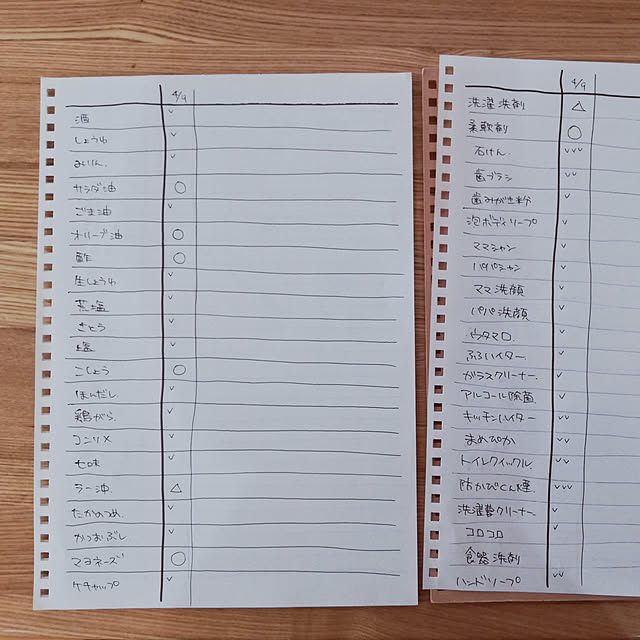 4/9
酒 ✓
しょうゆ ✓
みりん. ✓
サラダ油 ○
ごま油 ✓
オリーブ油 ○
酢 ○
生しょうゆ ✓
荒塩 ✓
さとう ✓
塩 ✓
こしょう ○
ほんだし ✓
鶏がら. ✓
コンソメ ✓
七味 ✓
ラー油. △
たかのつめ. ✓
かつおぶし ✓
マヨネーズ ○
ケチャップ ✓
4/9
洗濯洗剤 △
柔軟剤 ○
石けん. ✓✓✓
歯ブラシ ✓✓
歯みがき粉 ✓
泡ボディソープ ✓
ママシャン ✓
パパシャン ✓
ママ洗顔 ✓
パパ洗顔 ✓
ウタマロ. ✓
ふろハイター. ✓
ガラスクリーナー. ✓
アルコール除菌 ✓
キッチンハイター ✓✓
まめぴか ✓✓
トイレクイックル. ✓✓
防かびくん煙. ✓✓✓
洗濯曹クリーナー. ✓
コロコロ ✓
食器洗剤
ハンドソープ ✓✓